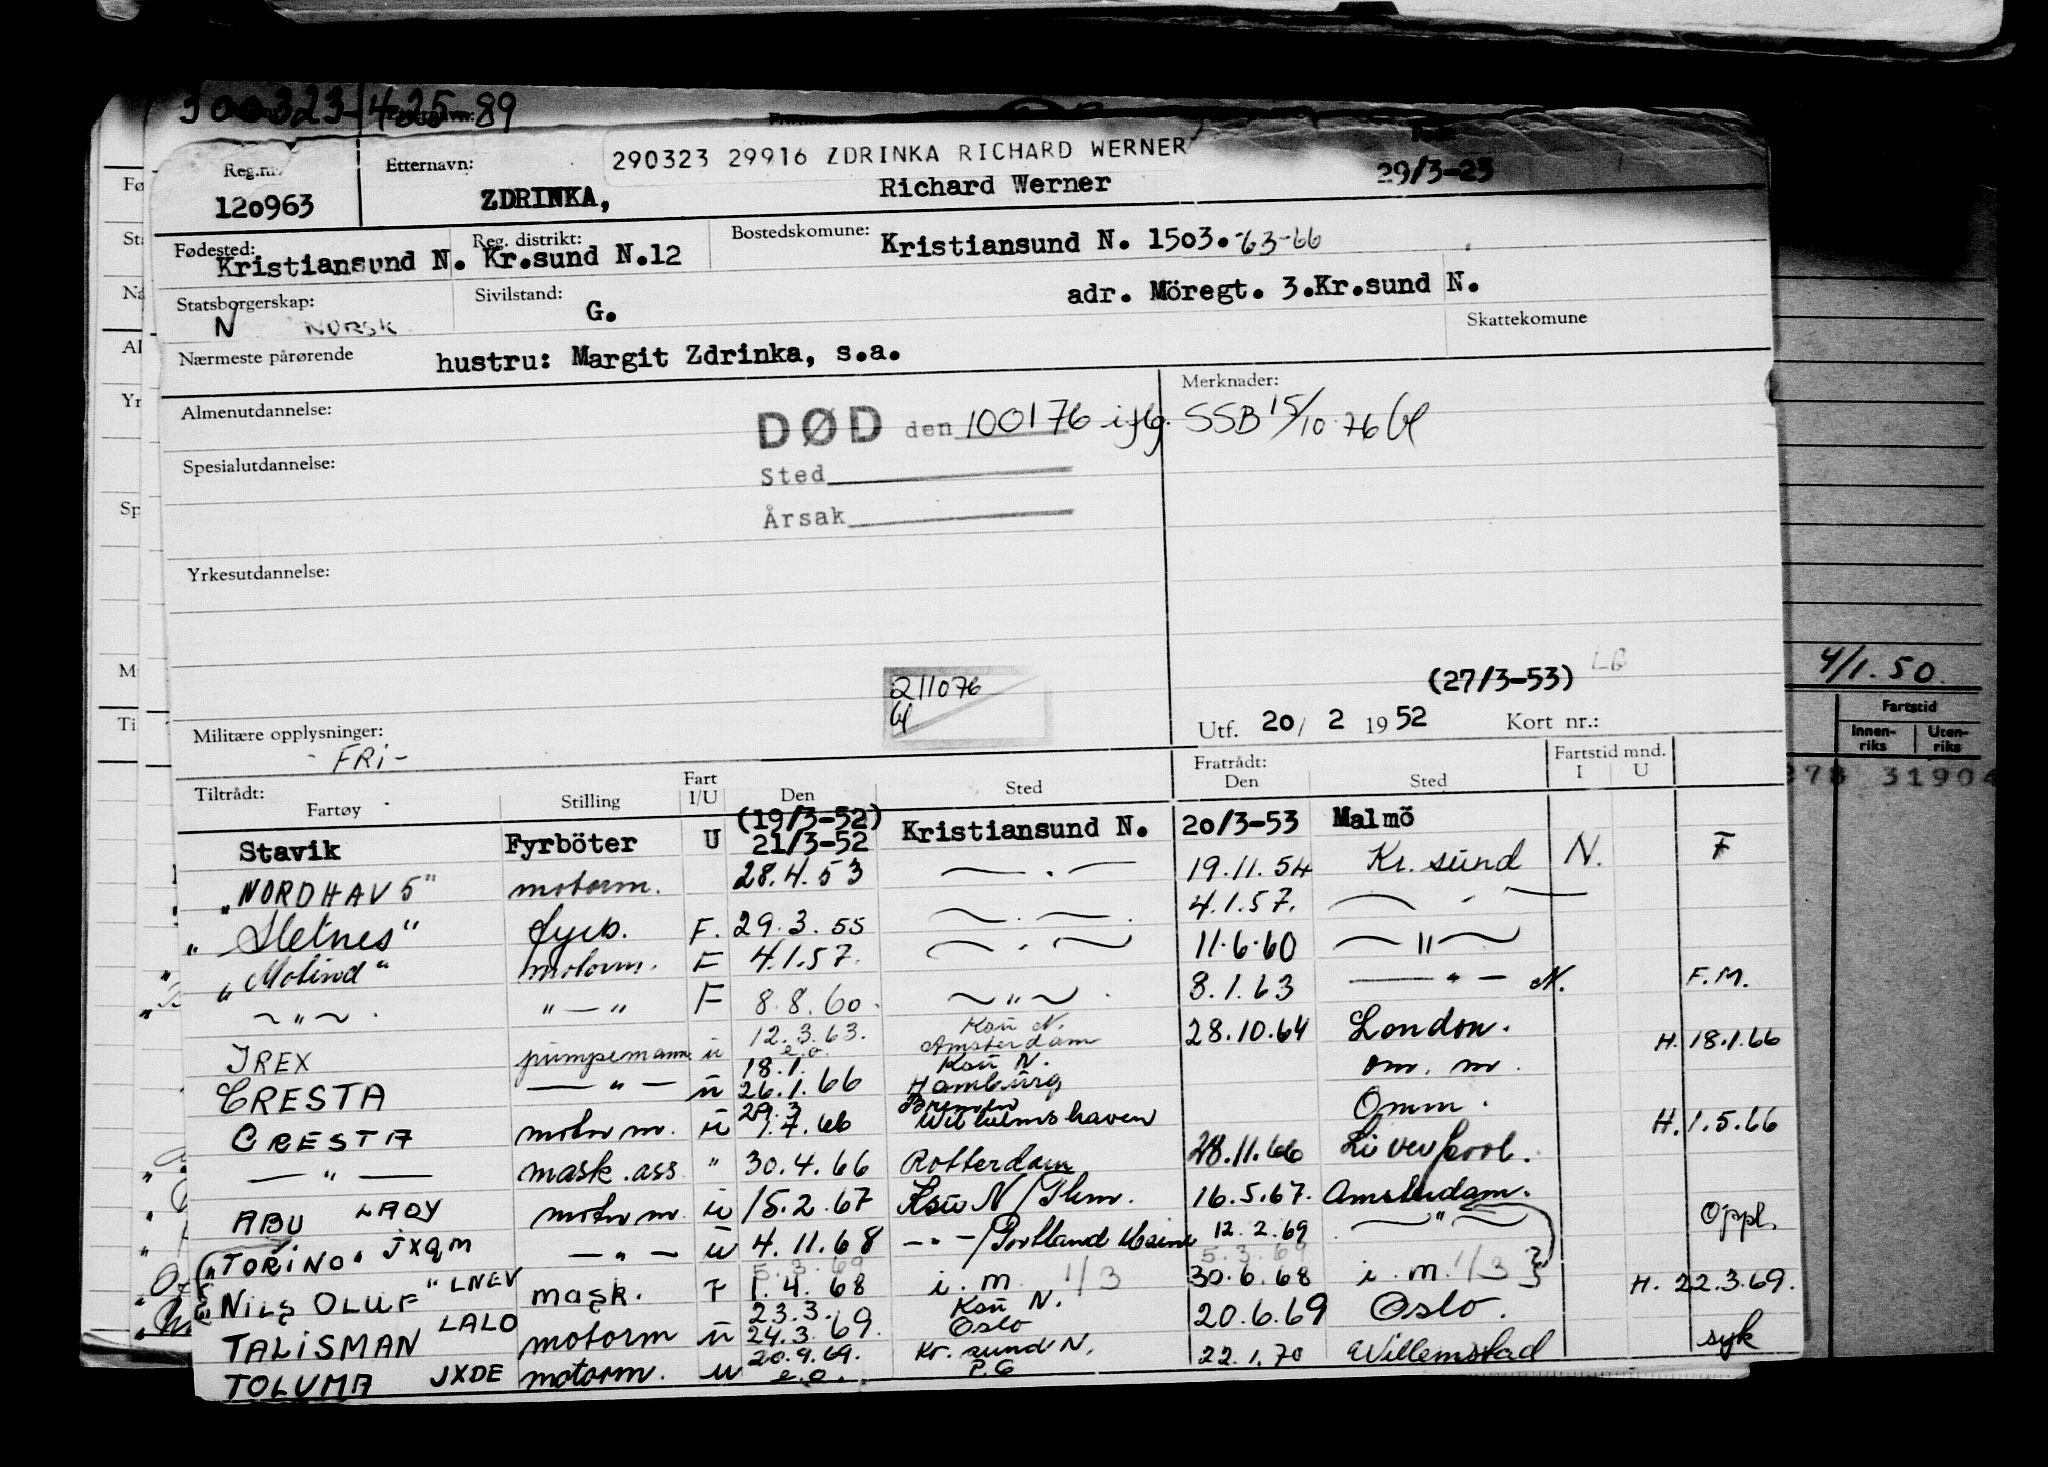 300323 42589
290323 29916 ZDRINKA RICHARD WERNER
Reg.nr. 120963 Etternavn: ZDRINKA, Richard Werner 29/3-23
Fødested: Kristiansund N. Reg. distrikt: Kr.sund N.12 Bostedskomune: Kristiansund N. 1503.-63-66
Statsborgerskap: N NORSK Sivilstand: G. adr. Möregt. 3.Kr.sund N.
Skattekomune
Nærmeste pårørende hustru: Margit Zdrinka, s.a.
Almenutdannelse: Merknader:
DØD den 100176 iflg. SSB 15/10-76
Spesialutdannelse:
Sted
Årsak
Yrkesutdannelse:
211076
(27/3-53) LG
Utf. 20/ 2 1952 Kort nr.:
Militære opplysninger: - FRi -
Tiltrådt: Fratrådt: Fartstid mnd.
Fartøy Stilling Fart I/U Den Sted Den Sted I U
Stavik Fyrböter U (19/3-52) 21/3-52 Kristiansund N. 20/3-53 Malmö
„NORDHAV 5" motorm. 28.4.53 — . — 19.11.54 Kr. sünd N. F
„Sletnes" fyrb. F. 29.3.55 — . — 4.1.57. — " —
„Molind" motorm. F 4.1.57. — . — 11.6.60 — " —
— " — " — " F 8.8.60. — " — 8.1.63 — " — N. F.M.
IREX pumpemann ü 12.3.63. e.o. Ksü N. Amsterdam 28.10.64 London. H. 18.1.66
CRESTA — " — ü 18.1. 26.1.66 Ksü N. Hamburg om. m.
CRESTA motorm. ü 29.3 1.4.66 Bremen Wilhelmshaven Omm. H. 1.5.66
— " — mask.ass " 30.4.66 Rotterdam 28.11.66 Liverpool.
ABU LAQY motorm ü 15.2.67 Ksü N/Thm. 16.5.67. Amsterdam. Oppl.
„TORINO" JXQM — " — ü 4.11.68 — " — /Portland Maine 12.2.69 — " —
5.3.69 5.3.69
NILS OLUF" LNEV mask. F 1.4.68 i. m. 1/3 30.6.68 i. m. 1/3 H. 22.3.69.
TALISMAN LALO motorm ü 23.3. 24.3.69. Ksü N. Oslo 20.6.69 Oslo.
TOLUMA JXDE motorm. u 20.9.69. e.o. Kr. sund N. P.G 22.1.70 Willemstad syk
4/1.50
Fartstid
Innenriks Utenriks
278 31904